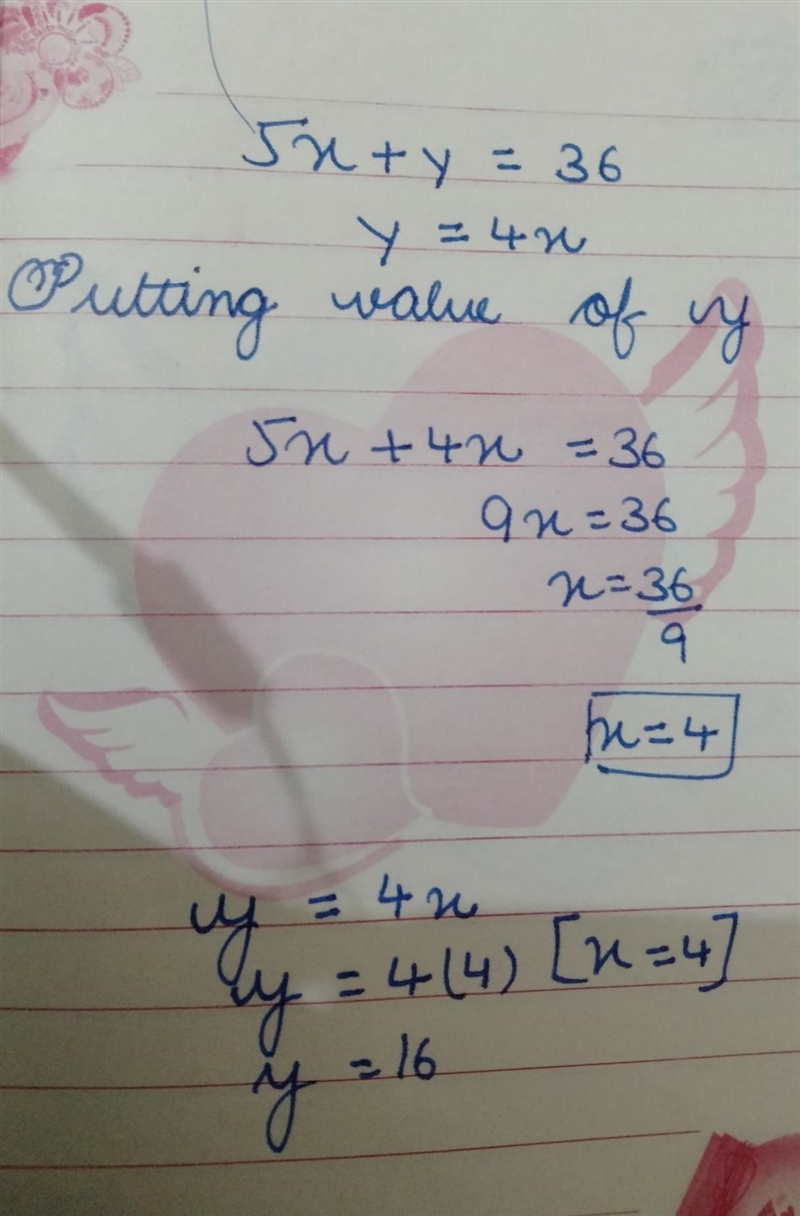 5x + y = 36
y = 4x
Putting value of y
5x + 4x = 36
9x = 36
x = 36/9
x = 4
y = 4x
y = 4(4) [x = 4]
y = 16